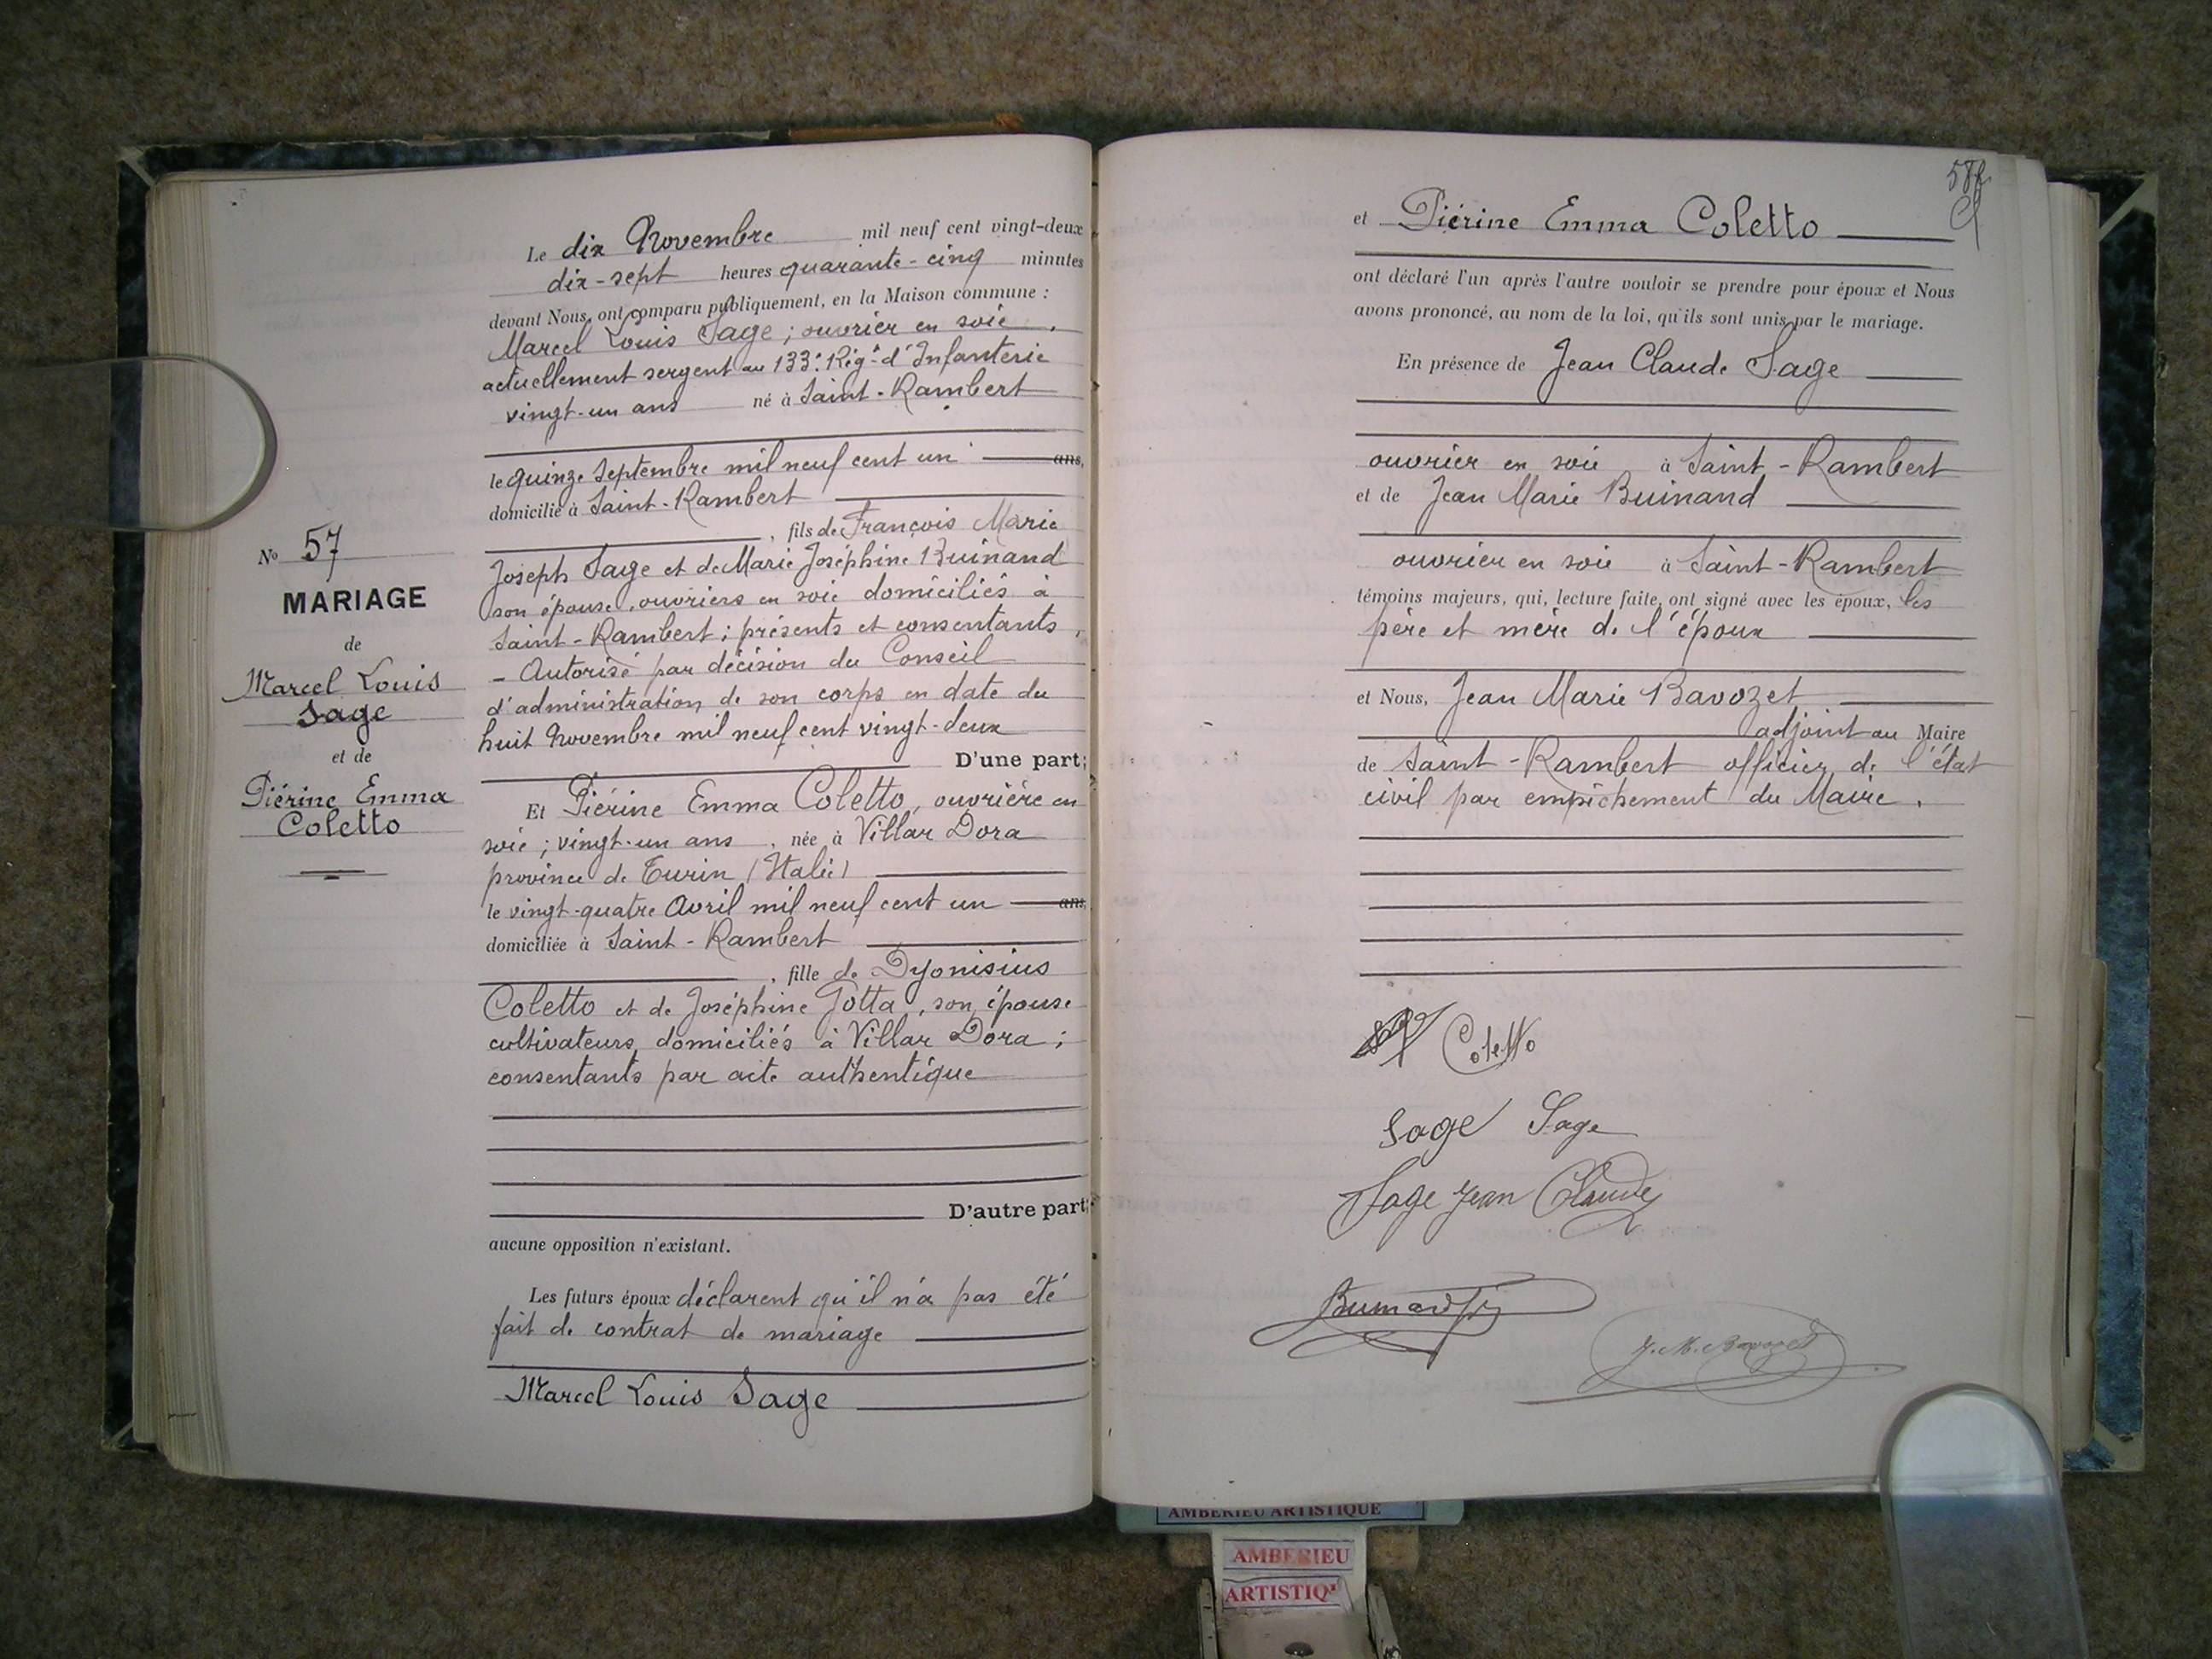 No 57
MARIAGE
de
Marcel Louis
Sage
et de
Piérine Emma
Coletto
Le dix Novembre mil neuf cent vingt-deux
dix-sept heures quarante-cinq minutes
devant Nous, ont comparu publiquement, en la Maison commune :
Marcel Louis Sage ; ouvrier en soie,
actuellement sergent au 133e Régt d'Infanterie
vingt-un ans né à Saint-Rambert
le quinze Septembre mil neuf cent un ans,
domicilié à Saint-Rambert
, fils de François Marie
Joseph Sage et de Marie Joséphine Buinand
son épouse, ouvriers en soie domiciliés à
Saint-Rambert ; présents et consentants,
- Autorisé par décision du Conseil
d'administration de son corps en date du
huit Novembre mil neuf cent vingt-deux
D'une part ;
Et Piérine Emma Coletto, ouvrière en
soie ; vingt-un ans, née à Villar Dora
province de Turin (Italie)
le vingt-quatre Avril mil neuf cent un ans,
domiciliée à Saint-Rambert
, fille de Dyonisius
Coletto et de Joséphine Gotta, son épouse
cultivateurs domiciliés à Villar Dora ;
consentants par acte authentique
D'autre part ;
aucune opposition n'existant.
Les futurs époux déclarent qu'il n'a pas été
fait de contrat de mariage
Marcel Louis Sage
58
et Piérine Emma Coletto
ont déclaré l'un après l'autre vouloir se prendre pour époux et Nous
avons prononcé, au nom de la loi, qu'ils sont unis par le mariage.
En présence de Jean Claude Sage
ouvrier en soie à Saint-Rambert
et de Jean Marie Buinand
ouvrier en soie à Saint-Rambert
témoins majeurs, qui, lecture faite, ont signé avec les époux, les
père et mère de l'époux
et Nous, Jean Marie Bavozet
adjoint au Maire
de Saint-Rambert officier de l'état
civil par empêchement du Maire.
Coletto
Sage Sage
Sage Jean Claude
J. M. Bavozet
AMBERIEU ARTISTIQUE
AMBERIEU
ARTISTIQ